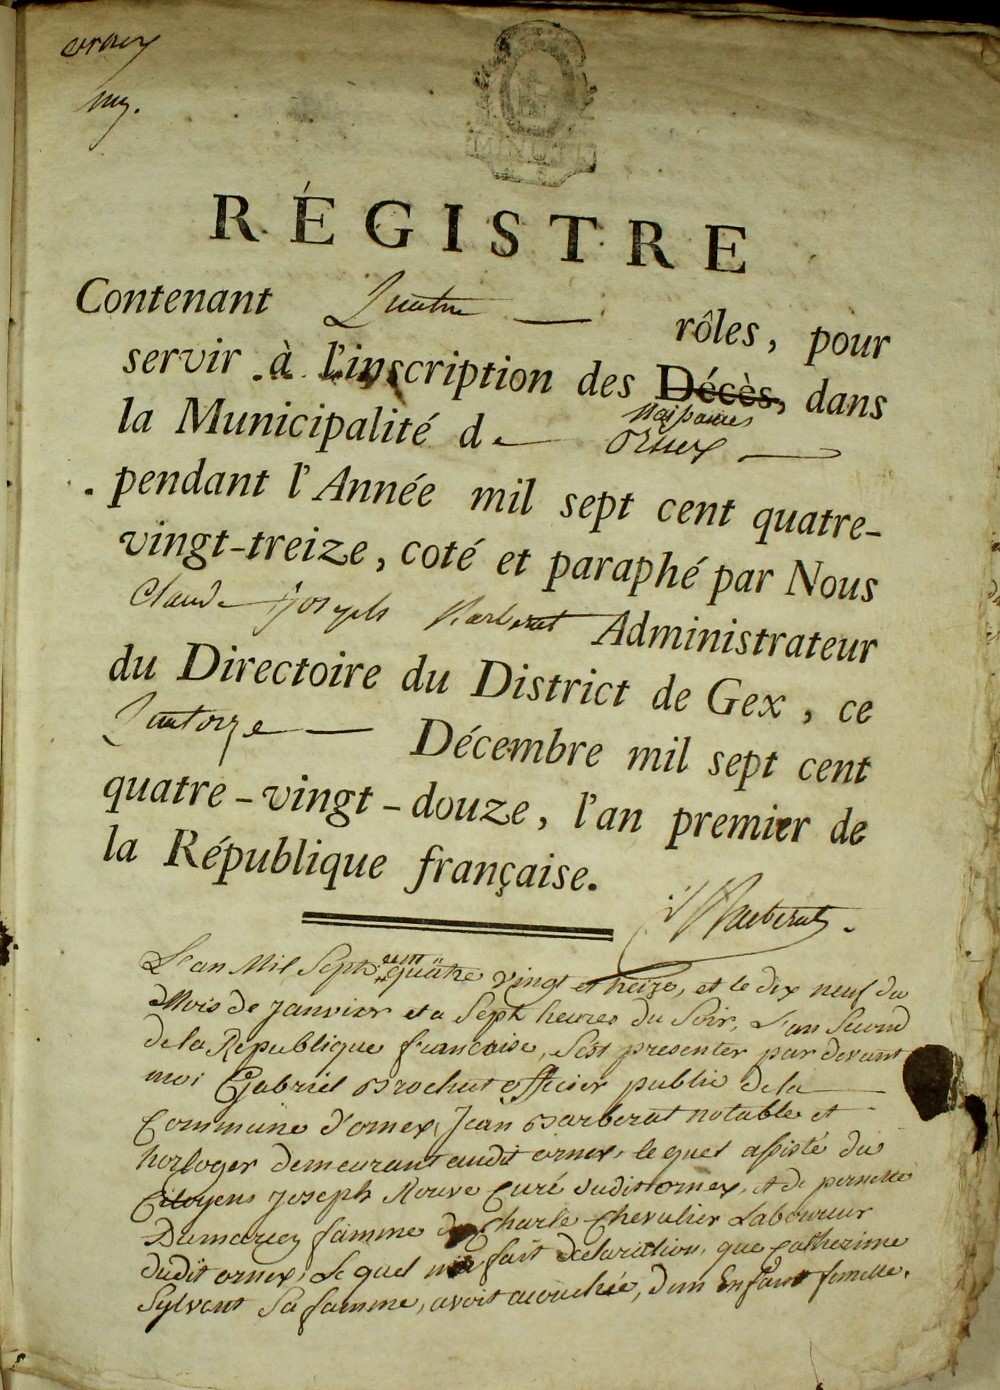 ornex
MINUTE
RÉGISTRE
Contenant Quatre rôles, pour
servir à l'inscription des Décès, dans
Naissances
la Municipalité de ornex
pendant l'Année mil sept cent quatre-
vingt-treize, coté et paraphé par Nous
Claude Joseph Barberat Administrateur
du Directoire du District de Gex, ce
Quatorze Décembre mil sept cent
quatre-vingt-douze, l'an premier de
la République française.
Barberat
L'an Mil Sept cent quatre vingt et treize, et le dix neuf du
Mois de Janvier et a Sept heures du Soir, L'an Second
de la Republique francoise, Sest presenter par devant
moi Gabriel Brochut officier public de la
Commune d'ornex, Jean Barberat notable et
horloger demeurant audit ornex, lequel assisté du
Citoyens Joseph Rouve Curé dudit ornex, et de pernette
Dumarey famme de Charle Chevalier Laboureur
dudit ornex, Le quel m'a fait declaration, que Catherine
Sylvent Sa famme, avoit acouchée, d'un Enfant femelle.